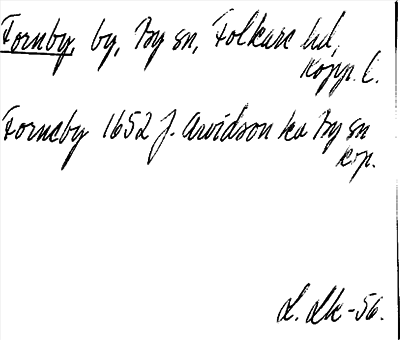 Fornby, by, By sn, Folkare hd,
Kopp. l.
Forneby 1652 J. Arvidson ka By sn
kop.
L. Lk -56.